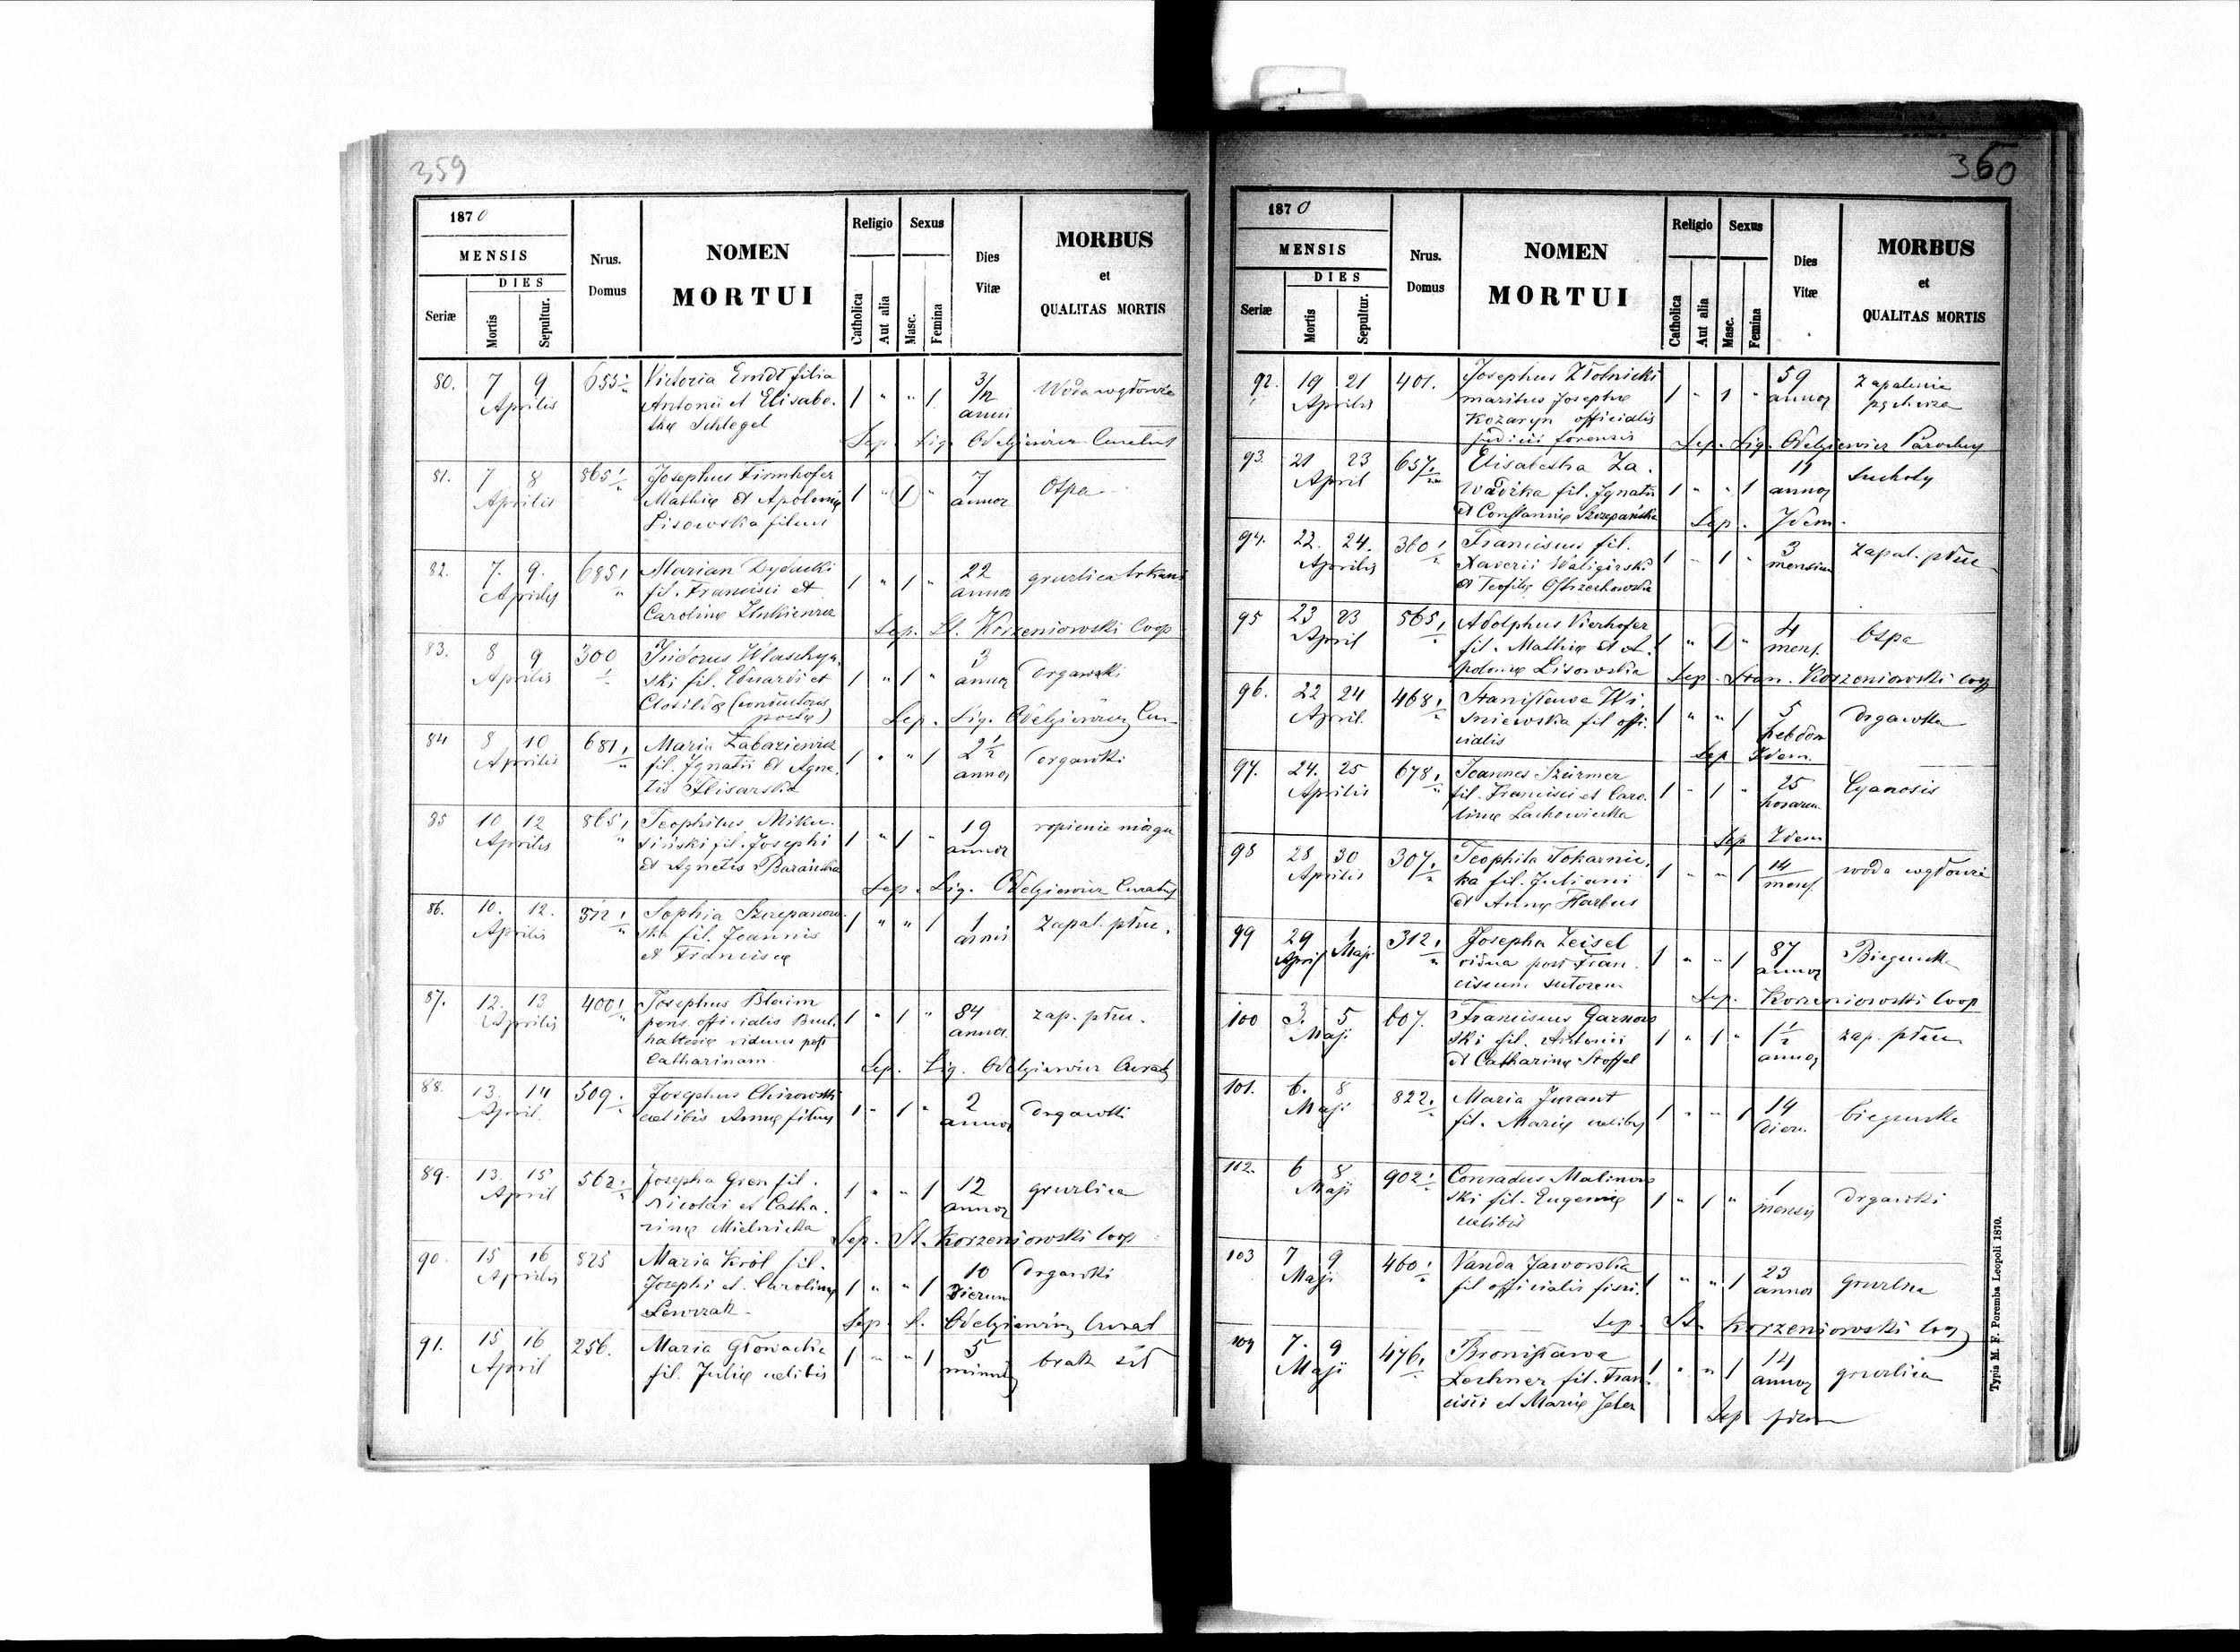 359
1870
MENSIS
DIES
Seriæ
Mortis
Sepultur.
Nrus.
Domus
NOMEN
MORTUI
Religio
Catholica
Aut alia
Sexus
Masc.
Femina
Dies
Vitæ
MORBUS
et
QUALITAS MORTIS
80. 7 9 655 Victoria Erndt filia 3/12 Woda w głowie
Aprilis Antonii et Elisabe- 1 " " 1 anni
thæ Schlegel
Sep. Lig. Odelgiewicz Curatus
81. 7 8 865 Josephus Firmhofer 7 Ospa
Aprilis Mathiæ et Apoloniæ 1 " 1 " annor
Lisowska filius
82. 7. 9. 685 Marian Dydacki 22 gruzlica
Aprilis fil. Francisci et 1 " 1 " annor
Carolinæ
Sep. St. Korzeniowski Coop
83. 8 9 300 Isidorus 3 drgawki
Aprilis ski fil. Eduardi et 1 " 1 " annor
Clotildæ (conductoris
postæ)
Sep. Lig. Odelgiewicz Cur
84 8 10 681 Maria Łabaziewicz 2 1/2 drgawki
Aprilis fil. Ignatii et Agne- 1 " " 1 annor
tis Flisarska
85 10 12 865 Teophilus Miku- 19 ropienie mózgu
Aprilis siński fil. Josephi 1 " 1 " annor
et Agnetis Barańska
Sep. Lig. Odelgiewicz Curatus
86. 10. 12. 312 Sophia Szczepanow- 1 Zapal. płuc.
Aprilis ska fil. Joannis 1 " " 1 anni
et Franciscæ
87. 12. 13 400 Josephus Blaim 84 zap. płuc.
Aprilis pens. officialis Buch- 1 " 1 " annor
halteriæ viduus post
Catharinam
Sep. Lig. Odelgiewicz Curatus
88. 13. 14 309 Josephus Chirowski 2 drgawki
April. cælibis Annæ filius 1 " 1 " annor
89. 13. 15 562 Josepha Gren fil. 12 gruzlica
April Nicolai et Catha- 1 " " 1 annor
rinæ Mielnicka
Sep. St. Korzeniowski Coop
90. 15 16 825 Maria Król fil. 10 drgawki
Aprilis Josephi et Carolinæ 1 " " 1 dierum
Sep. L. Odelgiewicz Curat
91. 15 16 256. Maria Głowacka 5 brak sił
April fil. Juliæ cælibis 1 " " 1 minut
360
1870
MENSIS
DIES
Seriæ
Mortis
Sepultur.
Nrus.
Domus
NOMEN
MORTUI
Religio
Catholica
Aut alia
Sexus
Masc.
Femina
Dies
Vitæ
MORBUS
et
QUALITAS MORTIS
92. 19 21 401. Josephus Złotnicki 59 Zapalenie
Aprilis maritus Josephæ 1 " 1 " annor pęcherza
Kozaryn officialis
judicii forensis
Sep. Lig. Odelgiewicz Parochus
93. 21 23 657. Elisabetha Za- 11 suchoty
April wadzka fil. Ignatii 1 " " 1 annor
et Constantiæ Szczepańska
Sep. Idem.
94. 22. 24. 360 Franciscus fil. 3 Zapal. płuc
Aprilis Xaverii Waligirski 1 " 1 " mensium
et Teofilæ
95 23 23 565 Adolphus Vierhofer 4 Ospa
April fil. Mathiæ et A- 1 " 1 " mens.
poloniæ Lisowska
Sep. Stan. Korzeniowski Coop
96. 22 24 468 Stanisława Wi- 5 drgawka
April. śniewska fil offi- 1 " " 1 hebdom
cialis
Sep Idem.
97. 24. 25 678 Joannes Szürmer 25 Cyanosis
Aprilis fil. Francisci et Caro- 1 " 1 " horarum
linæ Lachowiecka
Sep Idem
98 28 30 307 Teophila Tokarnic- 14 woda w głowie
Aprilis ka fil. Juliani 1 " " 1 mens.
et Annæ Harbus
99 29 1 312 Josepha Zeisel 87 Biegunka
April Maji vidua post Fran- 1 " " 1 annor
ciscum sutorem
Sep. Korzeniowski Coop
100 3. 5 607. Franciscus Garnow- 1 1/2 zap. płuc
Maji ski fil. Antonii 1 " 1 " annor
et Catharinæ Stoffel
101. 6. 8 822. Maria Jurant 14 biegunka
Maji fil. Mariæ cælibis 1 " " 1 dier.
112. 6 8 902 Conradus Malinow- 1 drgawki
Maji ski fil. Eugeniæ 1 " 1 " mensis
cælibis
103 7 9 460 Vanda Jaworska 23 gruzlica
Maji fil officialis fisci. 1 " " 1 annor
Sep. St. Korzeniowski Coop
104 7. 9 476. Bronisława 14 gruzlica
Maji Lechner fil. Fran- 1 " " 1 annor
cisci et Mariæ
Sep idem
Typis M. F. Poremba Leopoli 1870.